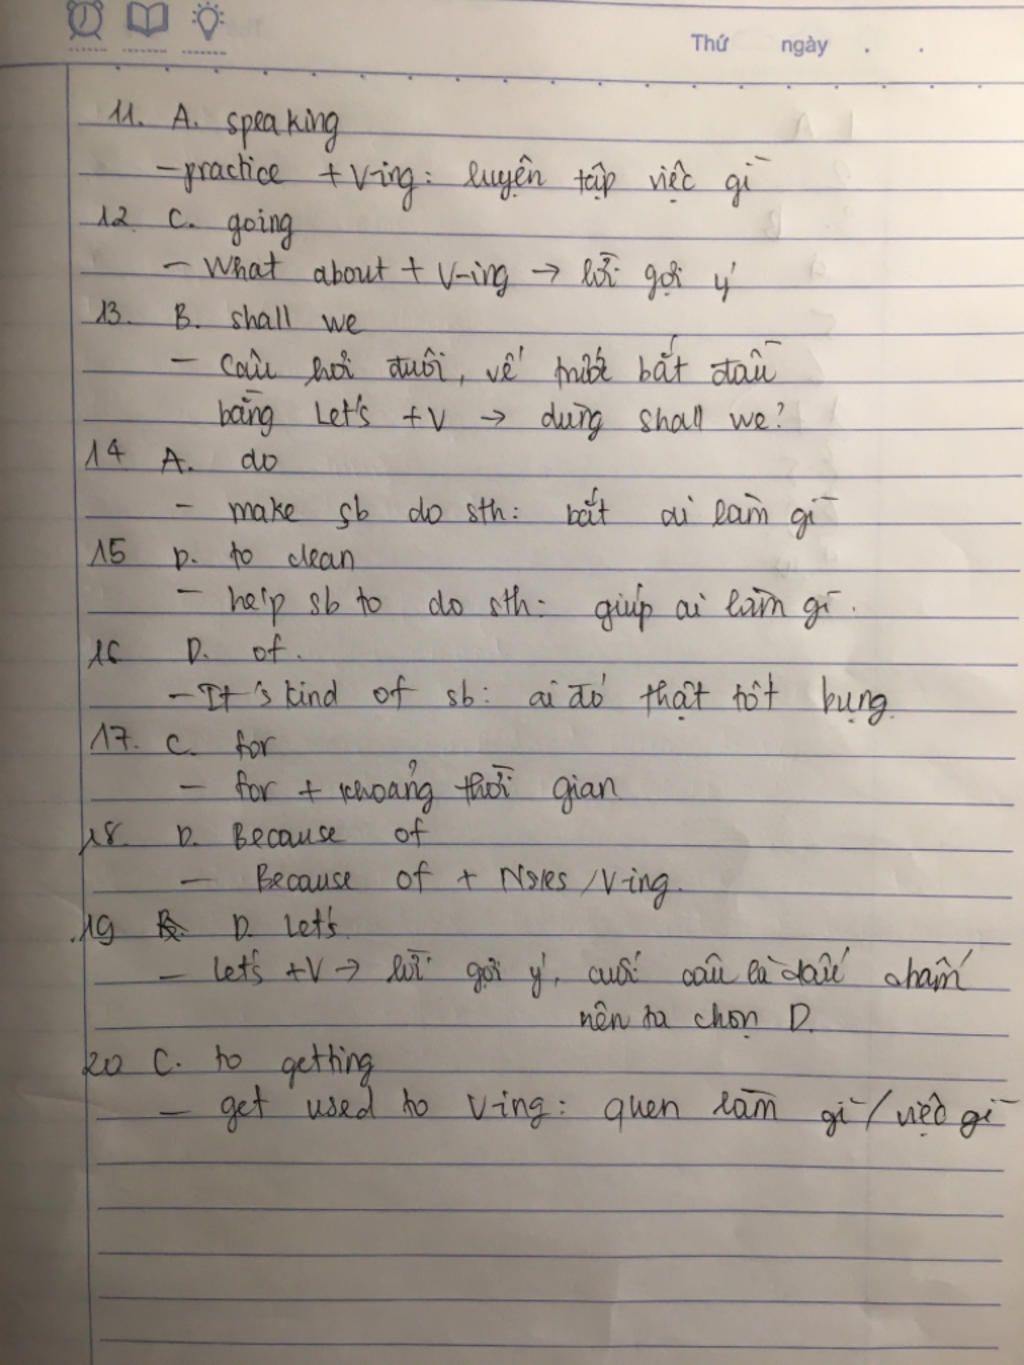 Thứ ngày . .
11. A. speaking
- practice + V-ing: luyện tập việc gì
12 C. going
- What about + V-ing → lời gợi ý
13. B. shall we
- Câu hỏi đuôi, vế trước bắt đầu
bằng Let's + V → dùng shall we?
14 A. do
- make sb do sth: bắt ai làm gì
15 D. to clean
- help sb to do sth: giúp ai làm gì.
16 D. of.
- It's kind of sb: ai đó thật tốt bụng.
17. C. for
- for + khoảng thời gian
18. D. Because of
- Because of + /V-ing.
19 D. Let's
- let's + V → lời gợi ý, cuối câu là dấu chấm
nên ta chọn D.
20 C. to getting
- get used to V-ing: quen làm gì / việc gì